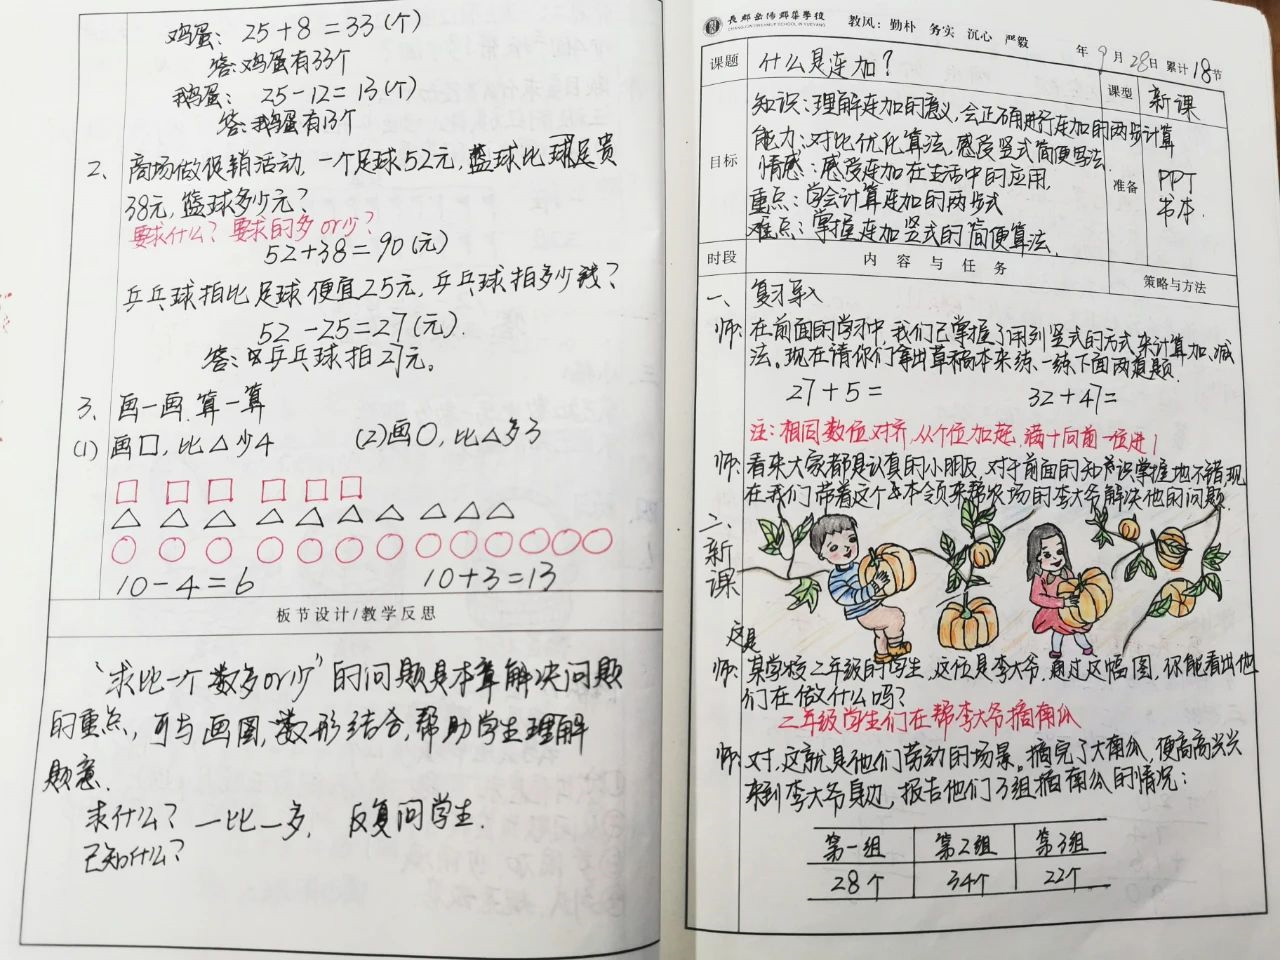 鸡蛋：25+8=33(个)
答：鸡蛋有33个
鹅蛋：25-12=13(个)
答：鹅蛋有13个
2、商场做促销活动，一个足球52元，蓝球比足球贵
38元，篮球多少元？
要求什么？要求的多or少？
52+38=90(元)
乒乓球拍比足球便宜25元，乒乓球拍多少钱？
52-25=27(元).
答：乒乓球拍27元。
3、画一画.算一算
(1)画□，比△少4 (2)画○，比△多3
10-4=6 10+3=13
板节设计/教学反思
“求比一个数多or少”的问题是本章解决问题
的重点，可与画图，数形结合，帮助学生理解
题意.
求什么？一比一多，反复问学生.
已知什么？
長郡岳陽郡華學校 教风：勤朴 务实 沉心 严毅
年9月28日 累计18节
课题 什么是连加？ 课型 新课
目标
知识：理解连加的意义，会正确进行连加的两步计算
能力：对比优化算法，感受竖式简便写法.
情感：感受连加在生活中的应用.
重点：学会计算连加的两步式
难点：掌握连加竖式的简便算法.
准备 PPT
书本.
时段 内容与任务 策略与方法
一、复习导入
师：在前面的学习中，我们已掌握了用列竖式的方式来计算加、减
法。现在请你们拿出草稿本来练一练下面两道题.
27+5= 32+47=
注：相同数位对齐，从个位加起，满十向前一位进1
师：看来大家都是认真的小朋友，对于前面的知识掌握地不错，现
在我们带着这个本领来帮农场的李大爷解决他的问题.
二、新课
这是
师：某学校二年级的学生，这位是李大爷，通过这幅图，你能看出他
们在做什么吗？
二年级学生们在帮李大爷摘南瓜
师：对，这就是他们劳动的场景。摘完了大南瓜，便高高兴兴
来到李大爷身边，报告他们3组摘南瓜的情况：
第一组 第2组 第3组
28个 34个 22个